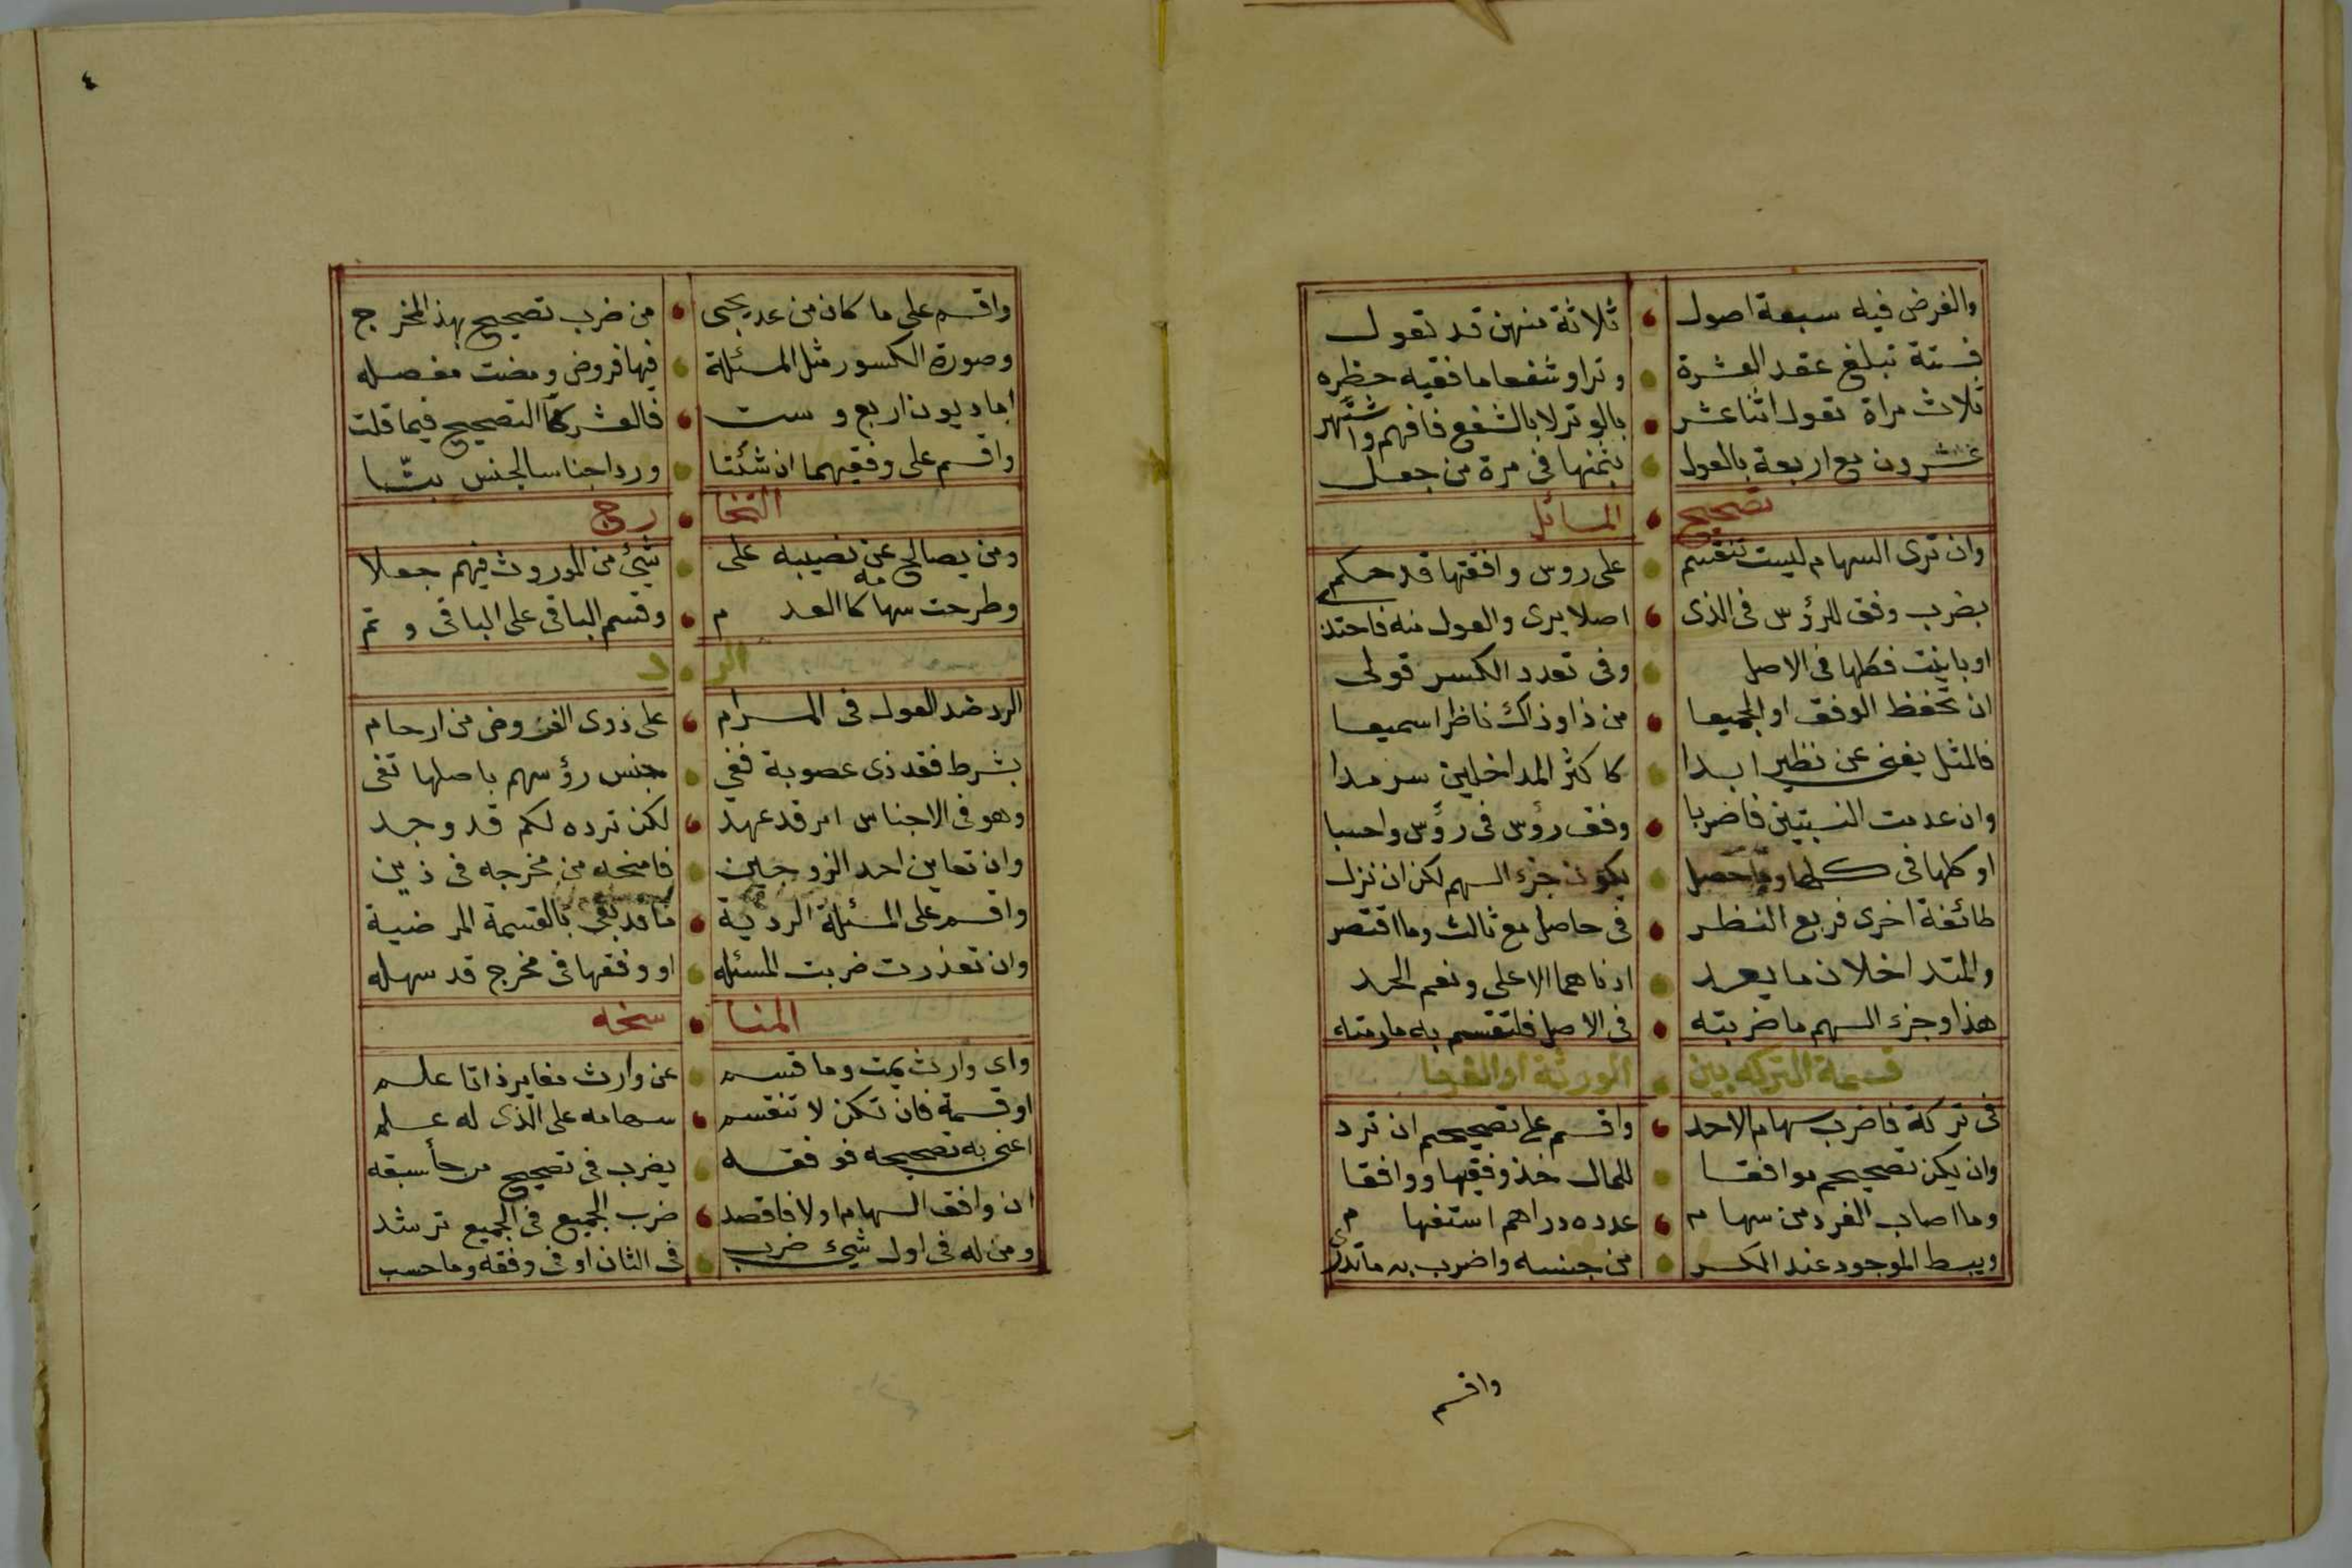 والفرض فيه سبعة اصول • ثلاثة منهن قد تعول
فستة تبلغ عقد العشرة • وترا وشفعا ما فقيه حظره
ثلاث مراة تعول اثنا عشر • بالوتر لا بالشفع فافهم واشتهر
عشرون مع اربعة بالعول • بثمنها في مرة من جعل
تصحيح • المسائل
وان ترى السهام ليست تنقسم • على روس وافقتها قد حكم
بضرب وفق الرؤس في الذى • اصلا يرى والعول منه فاحتذ
او باينت فكلها في الاصل • وفى تعدد الكسر قولى
ان تحفظ الوفق او الجميعا • من ذا وذاك ناظرا سميعا
فالمثل يغنى عن نظير ابدا • كاكثر المداخلين سرمدا
وان عدمت النسبتين فاضربا • وفق رؤس فى رؤس واحسبا
او كلها فى كلها وما حصل • يكون جزء السهم لكن ان نزل
طائفة اخرى فربع النظر • فى حاصل مع ثالث وما اقتصر
والمتداخلان ما يعد • ادناهما الاعلى ونعم الحد
هذا وجزء السهم ما ضربته • فى الاصل فلتقسم به ما رمته
قسمة التركة بين • الورثة او الغرما
فى تركة فاضرب سهام الاحد • واقسم على تصحيحهم ان ترد
وان يكن تصحيحهم موافقا • للمال خذ وفقيها ووافقا
وما اصاب الفرد من سهام • عدده دراهم استفها م
ويبسط الموجود عند الكسر • من جنسه واضرب به ما تدرى
واقسم
٤
واقسم على ما كان من عد يجى • من ضرب تصحيح بهذ المخرج
وصورة الكسور مثل المسئلة • فيها فروض ومضت مفصله
اما ديون اربع وست • فالعشر كا التصحيح فيما قلت
واقسم على وفقيهما ان شئتا • ورد اجناسا لجنس بتّا
التخا • رج
ومن يصالح عن نصيبه على • شئ من الموروث فيهم جعلا
وطرحت سهامه كا العد م • وقسم الباقى على الباقى و تم
الر • د
الرد ضد العول فى المرام • على ذوى الفروض من ارحام
بشرط فقد ذى عصوبة ففى • جنس رؤسهم باصلها تفى
وهو فى الاجناس امر قد عهد • لكن ترده لكم قد وجد
وان تعاين احد الزوجين • فامنحه من مخرجه فى ذين
واقسم على المسئلة الردية • ما قد بقى بالقسمة المرضية
وان تعذرت ضربت المسئله • او وفقها فى مخرج قد سهله
المنا • سخه
واى وارث يمت وما قسم • عن وارث مغاير ذا تا علم
او قسمة فان تكن لا تنقسم • سهامه على الذى له علم
اعنى به تصحيحه فوفقه • يضرب فى تصحيح من سبقه
ان وافق السهام اولا فاقصد • ضرب الجميع فى الجميع ترشد
ومن له فى اول شئ ضرب • فى الثان او فى وفقه وما حسب